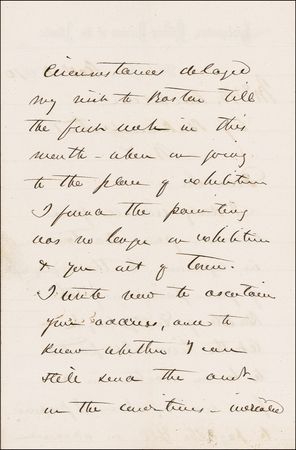 Circumstances delayed
my visit to Boston till
the first week in this
month - when on going
to the place of exhibition
I found the painting
was no longer on exhibition
& you out of town.
I write now to ascertain
your address, and to
know whether I can
still send the
in the conditions - indicated